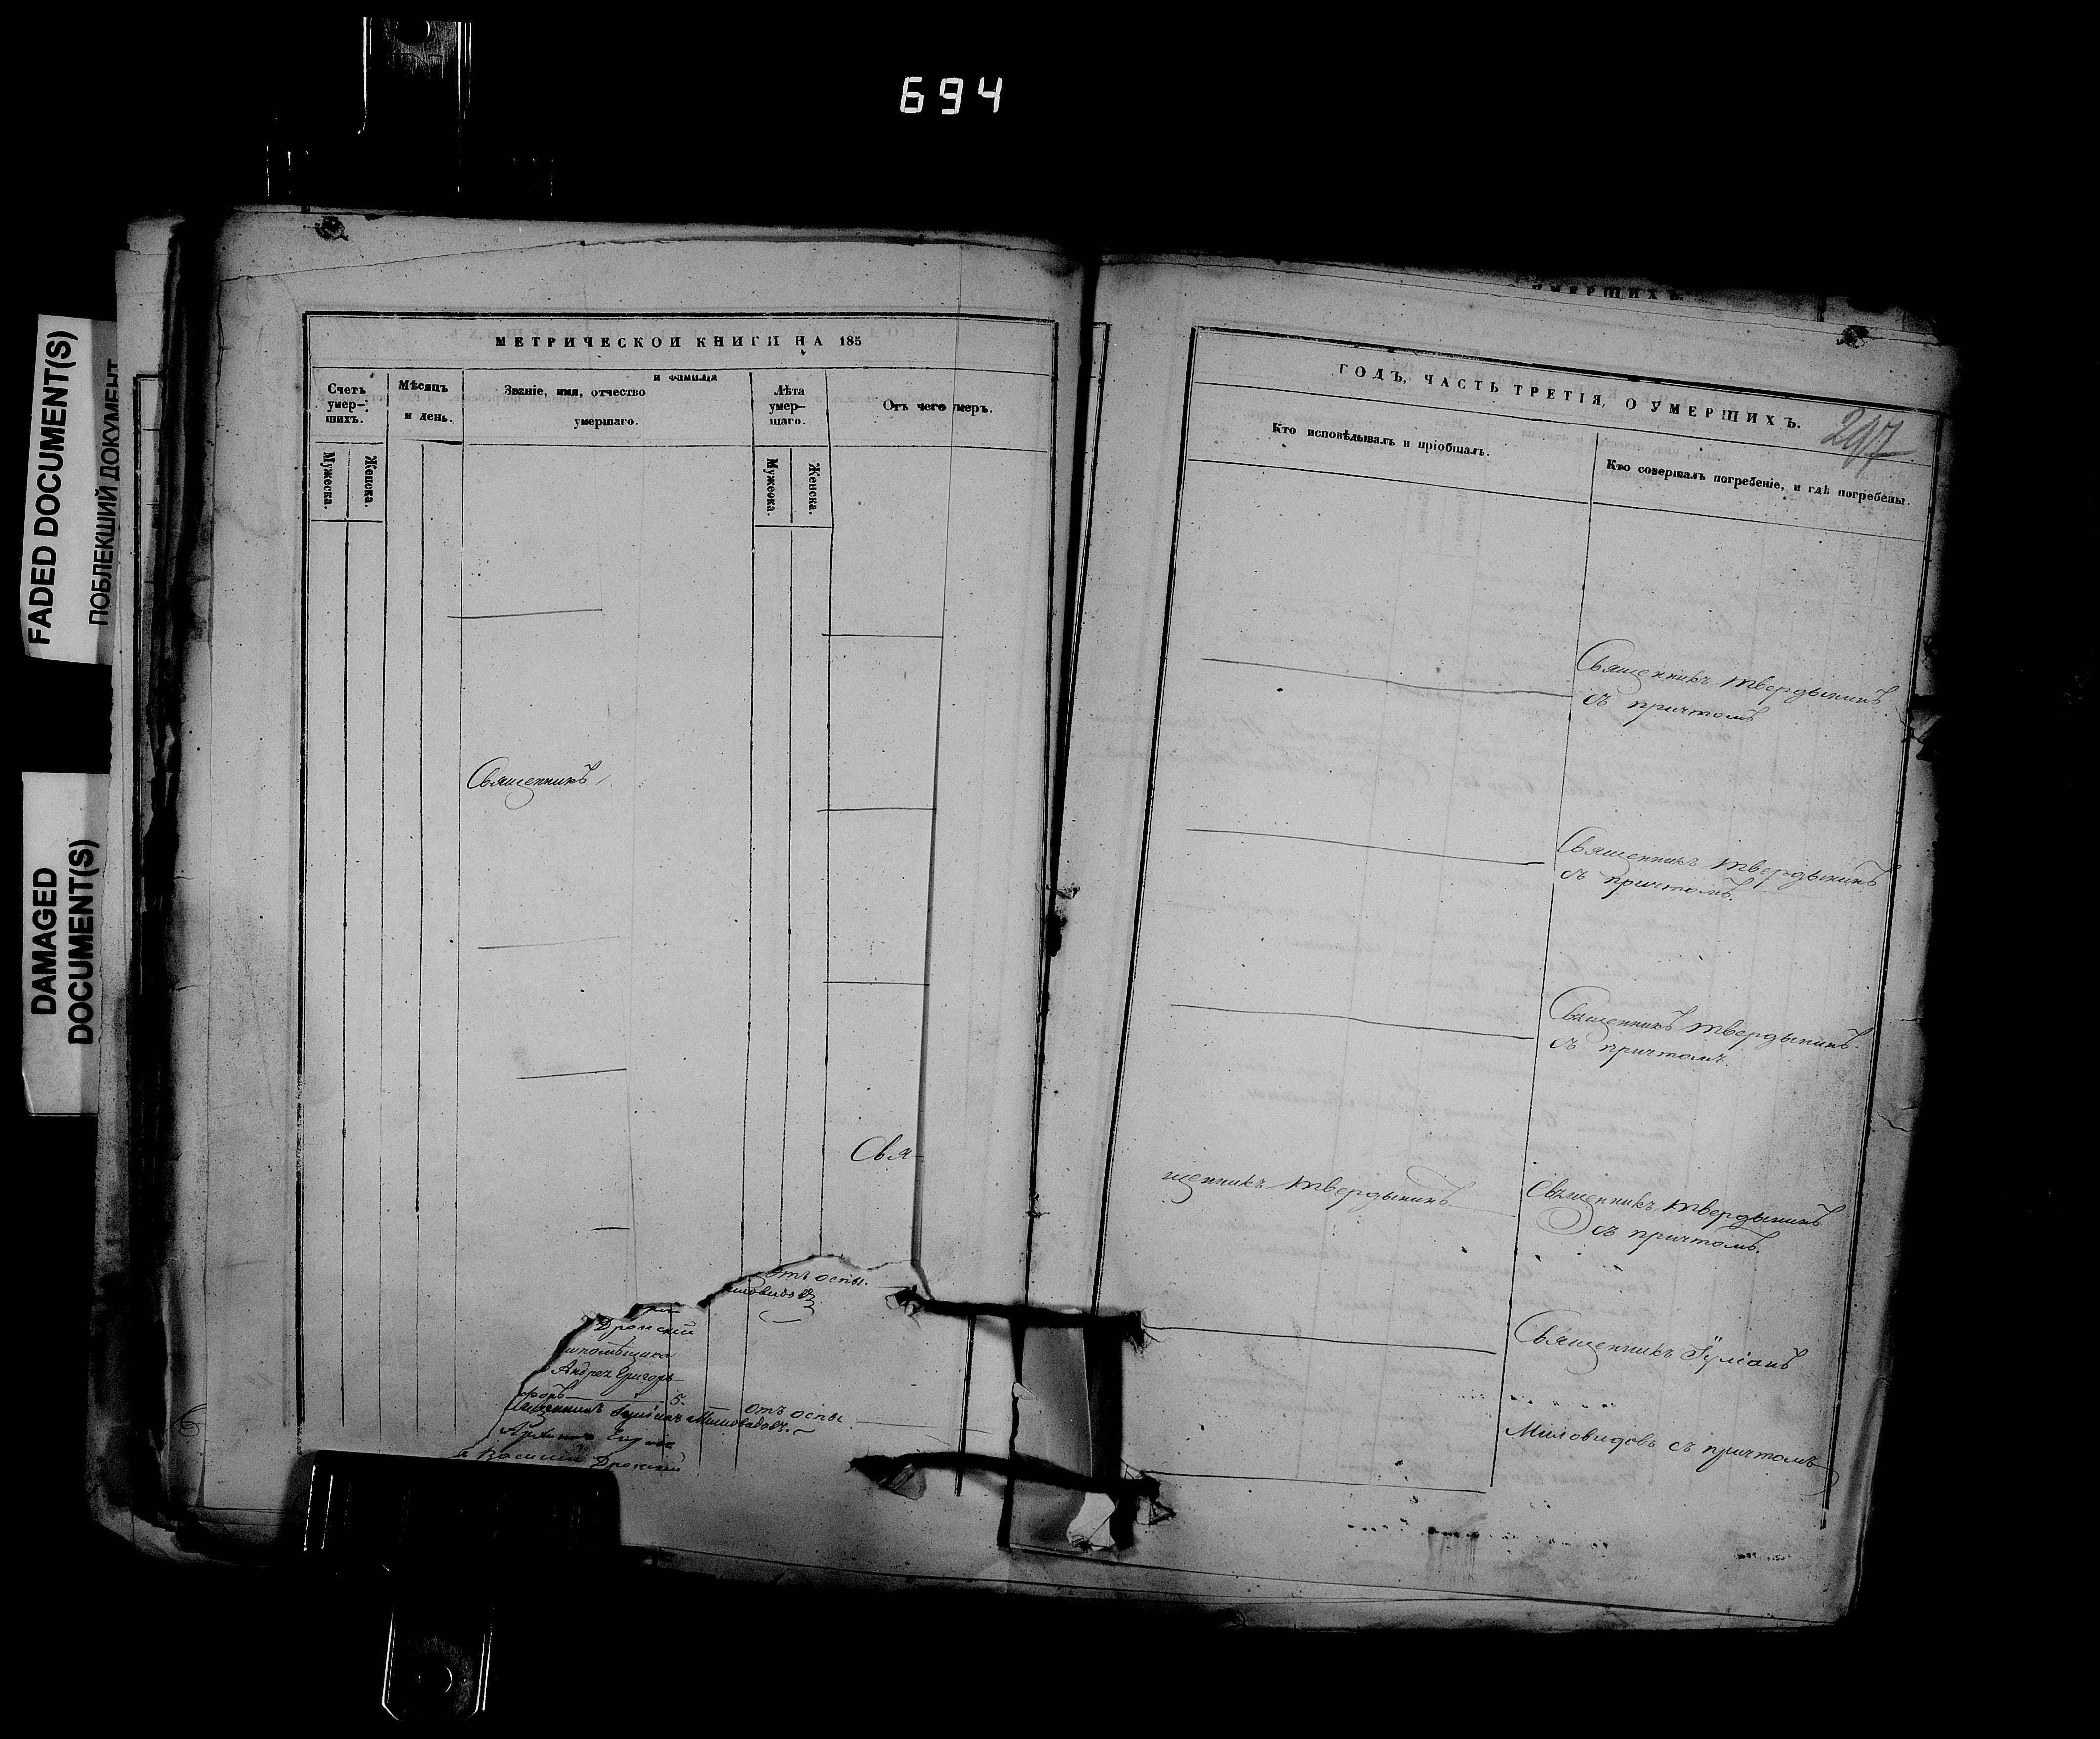 694
FADED DOCUMENT(S)
ПОБЛЕКШИЙ ДОКУМЕНТ
DAMAGED
DOCUMENT(S)
МЕТРИЧЕСКОЙ КНИГИ НА 185
Счетъ умер-шихъ.
Мужеска.
Женска.
Мѣсяцъ и день.
Званіе, имя, отчество и фамилія умершаго.
Лѣта умер-шаго.
Мужеска.
Женска.
Отъ чего умеръ.
Священникъ
Свя-
отъ оспы.
Дронскій
Андрей Григорь
5.
отъ оспы
Миловидовъ.
Василій Дронскій
УМЕРШИХЪ
ГОДЪ, ЧАСТЬ ТРЕТІЯ, О УМЕРШИХЪ.
297
Кто исповѣдывалъ и пріобщалъ.
Кто совершалъ погребеніе, и гдѣ погребены.
Священникъ Твердынинъ
съ причтомъ
Священникъ Твердынинъ
съ причтомъ.
Священникъ Твердынинъ
съ причтомъ.
щенникъ Твердынинъ
Священникъ Твердынинъ
съ причтомъ.
Священникъ Іуліанъ
Миловидовъ съ причтомъ